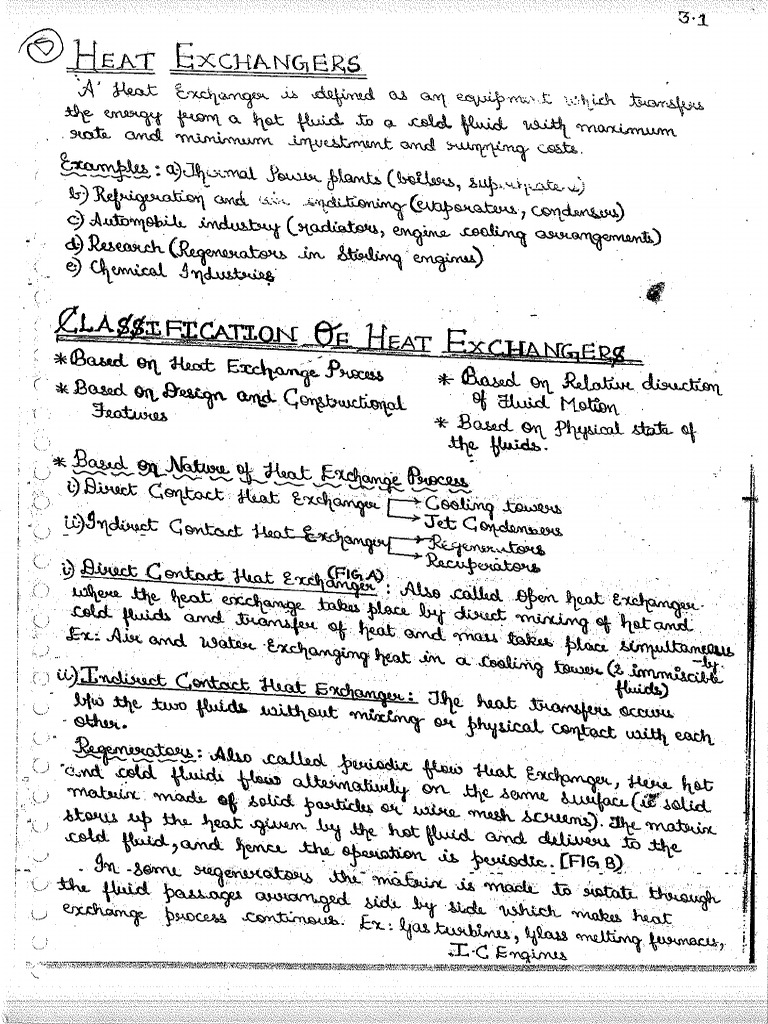 3.1
5
HEAT EXCHANGERS
'A' Heat Exchanger is defined as an equipment which transfers
the energy from a hot fluid to a cold fluid with maximum
rate and minimum investment and running costs.
Examples: a) Thermal Power plants (boilers,
b) Refrigeration and air conditioning (evaporaters, condensers)
c) Automobile industry (radiators, engine cooling arrangements)
d) Research (Regenerators in Stirling engines)
e) Chemical Industries
CLASSIFICATION OF HEAT EXCHANGERS
* Based on Heat Exchange Process
* Based on Design and Constructional
Features
* Based on Relative direction
of Fluid Motion
* Based on Physical state of
the fluids.
* Based on Nature of Heat Exchange Process
i) Direct Contact Heat Exchanger → Cooling towers
→ Jet Condensers
ii) Indirect Contact Heat Exchanger → Regenerators
→ Recuperators
i) Direct Contact Heat Exchanger (FIG A): Also called open heat Exchanger.
where the heat exchange takes place by direct mixing of hot and
cold fluids and transfer of heat and mass takes place simultaneous
-ly.
Ex: Air and Water Exchanging heat in a cooling tower (2 immiscible
fluids)
ii) Indirect Contact Heat Exchanger: The heat transfers occurs
b/w the two fluids without mixing or physical contact with each
other.
Regenerators: Also called periodic flow Heat Exchanger, Here hot
and cold fluids flow alternatively on the same surface (ie solid
matrix made of solid particles or wire mesh screens). The matrix
stores up the heat given by the hot fluid and delivers to the
cold fluid, and hence the operation is periodic. [FIG B)
In some regenerators the matrix is made to rotate through
the fluid passages arranged side by side which makes heat
exchange process continous. Ex: Gas turbines, Glass melting furnaces,
I.C Engines